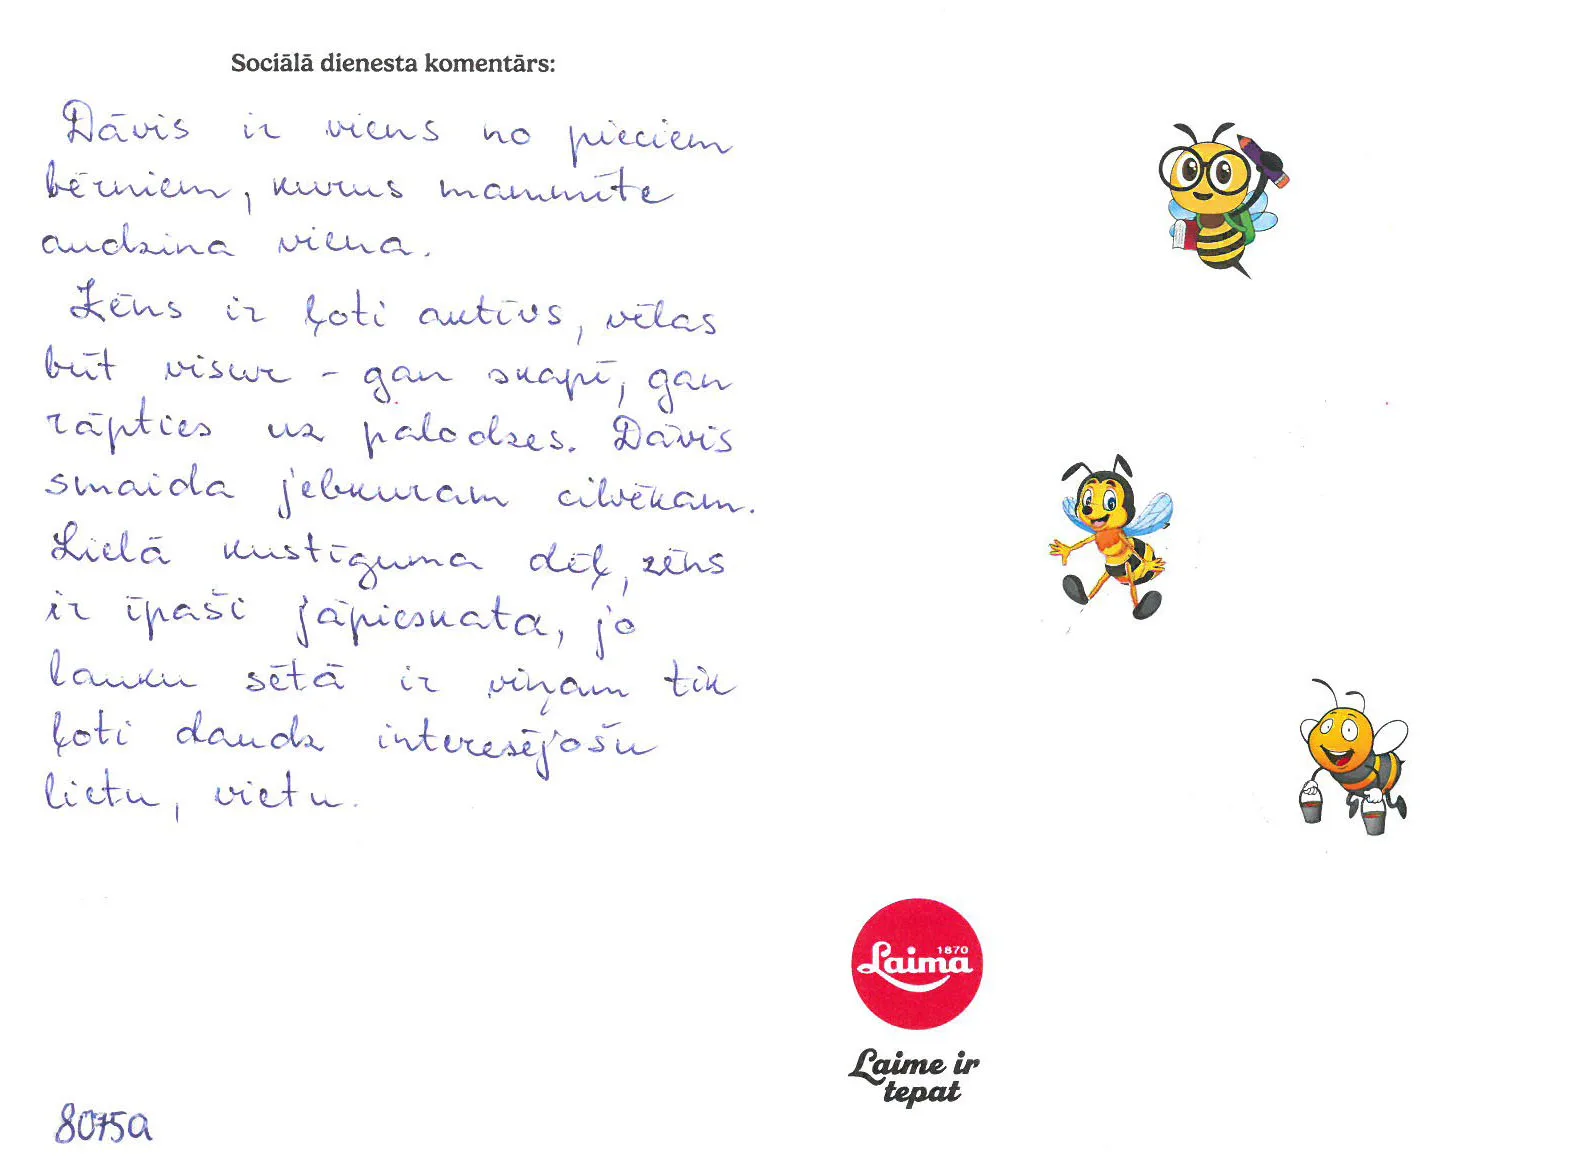 Sociālā dienesta komentārs:
Dāvis ir viens no pieciem
bērniem, kurus mammīte
audzina viena.
Zēns ir ļoti aktīvs, vēlas
būt visur - gan skapī, gan
rāpties uz palodzes. Dāvis
smaida jebkuram cilvēkam.
Lielā kustīguma dēļ, zēns
ir īpaši jāpieskata, jo
lauku sētā ir viņam tik
ļoti daudz interesējošu
lietu, vietu.
8075a
1870
Laima
Laime ir
tepat